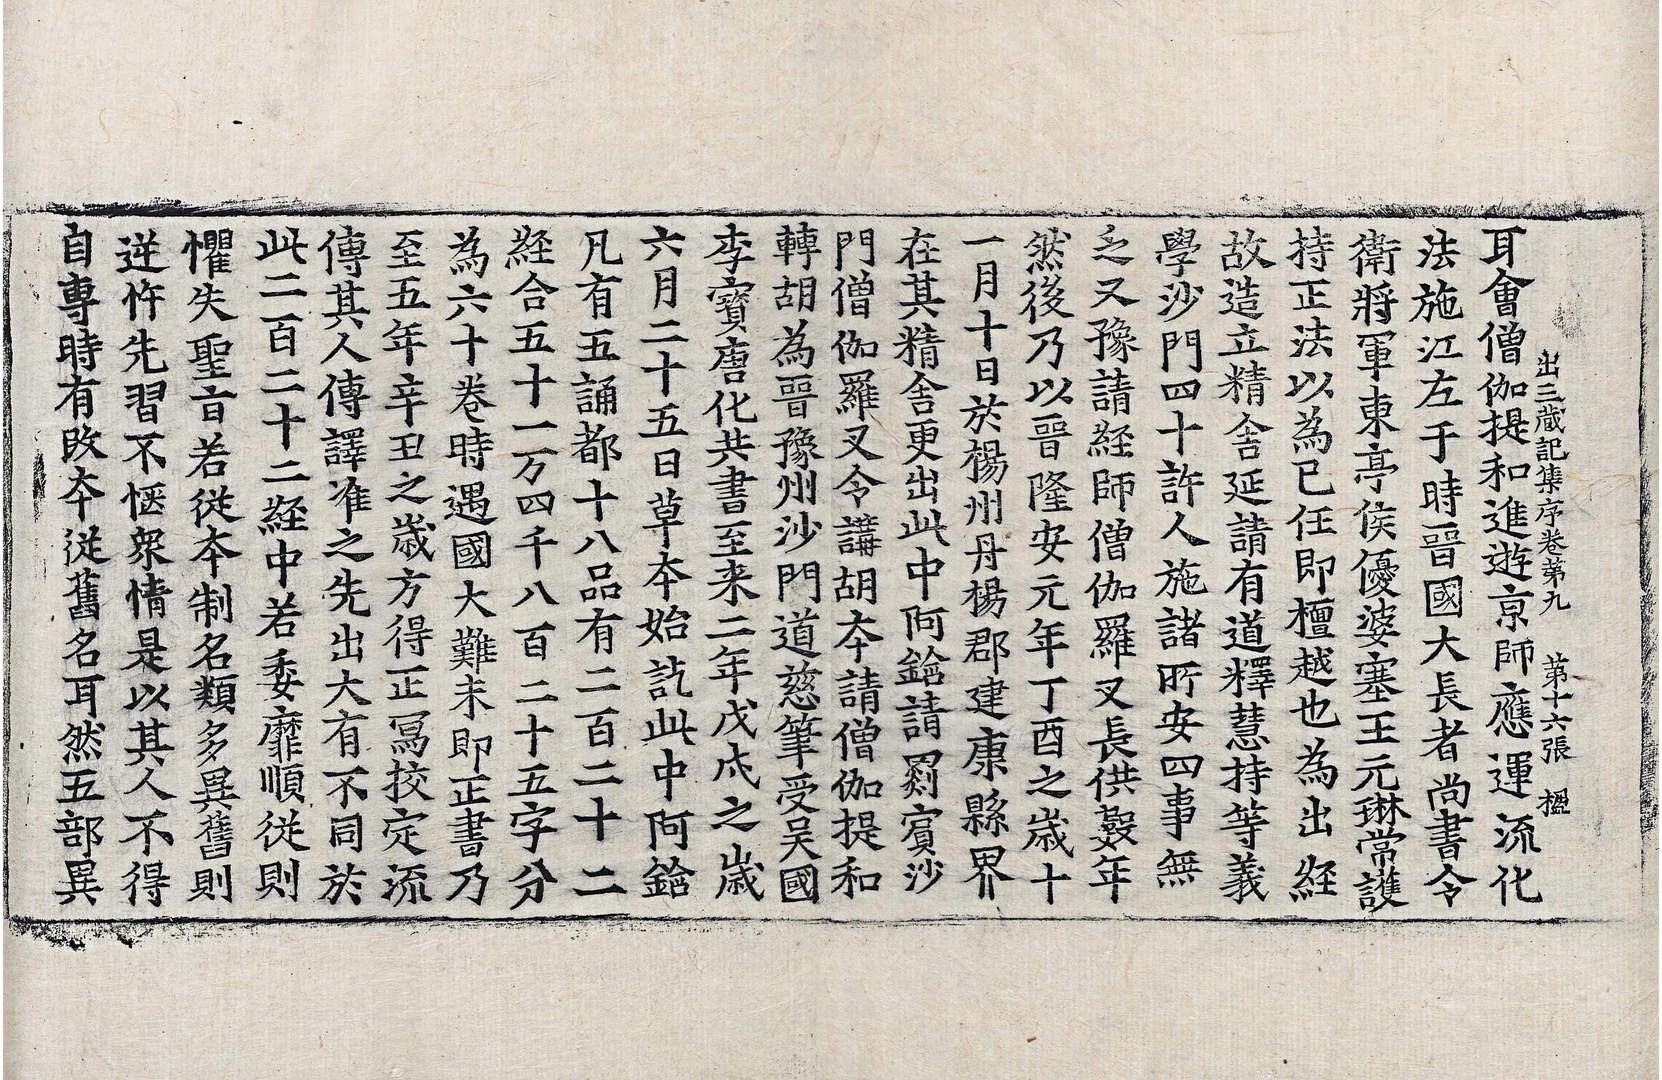 出三藏記集序卷第九 第十六張 楹
耳會僧伽提和進遊京師應運流化
法施江左于時晉國大長者尚書令
衛將軍東亭侯優婆塞王元琳常護
持正法以為已任即檀越也為出經
故造立精舍延請有道釋慧持等義
學沙門四十許人施諸所安四事無
乏又豫請經師僧伽羅叉長供數年
然後乃以晉隆安元年丁酉之歲十
一月十日於楊州丹楊郡建康縣界
在其精舍更出此中阿鋡請罽賓沙
門僧伽羅叉令講胡本請僧伽提和
轉胡為晉豫州沙門道慈筆受吳國
李寶唐化共書至来二年戊戌之歲
六月二十五日草本始訖此中阿鋡
凡有五誦都十八品有二百二十二
經合五十一万四千八百二十五字分
為六十卷時遇國大難未即正書乃
至五年辛丑之歲方得正寫挍定流
傳其人傳譯准之先出大有不同於
此二百二十二經中若委靡順從則
懼失聖旨若從本制名類多異舊則
逆忤先習不愜衆情是以其人不得
自專時有改本從舊名耳然五部異